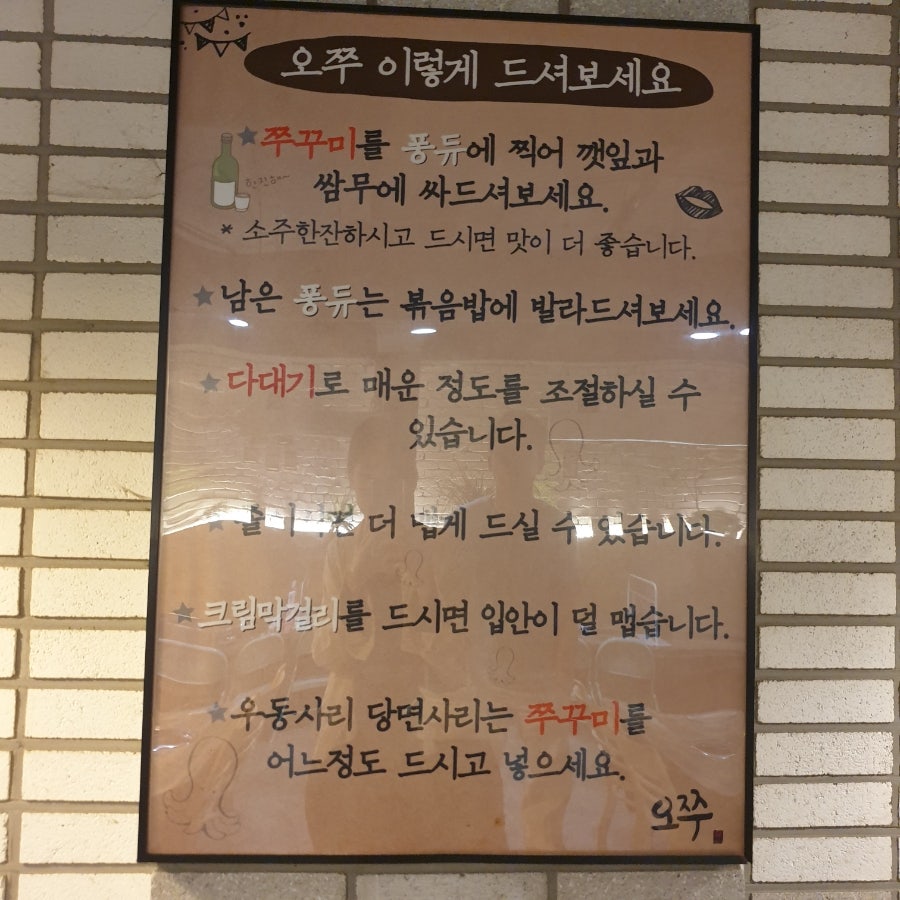 오쭈 이렇게 드셔보세요
★쭈꾸미를 퐁듀에 찍어 깻잎과
한잔해~
쌈무에 싸드셔보세요.
* 소주한잔하시고 드시면 맛이 더 좋습니다.
★남은 퐁듀는 볶음밥에 발라드셔보세요.
★다대기로 매운 정도를 조절하실 수
있습니다.
★ 더 맵게 드실 수 있습니다.
★크림막걸리를 드시면 입안이 덜 맵습니다.
★우동사리 당면사리는 쭈꾸미를
어느정도 드시고 넣으세요.
오쭈